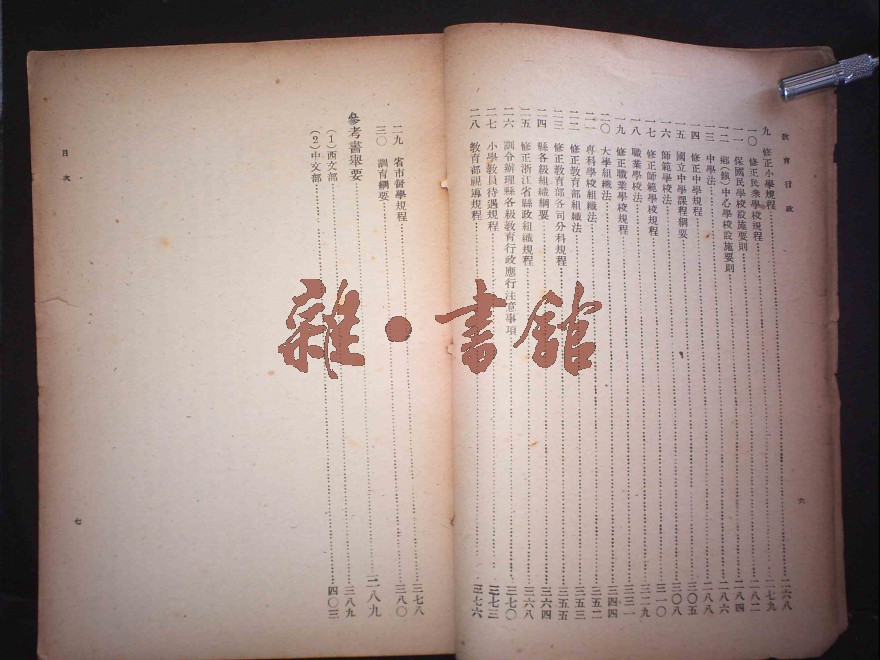 教育行政
九 修正小學規程……二六八
一〇 修正民衆學校規程……二七九
一一 保國民學校設施要則……二八二
一二 鄉(鎮)中心學校設施要則……二八四
一三 中學法……二八六
一四 修正中學規程……二八八
一五 國立中學課程綱要……三〇五
一六 師範學校法……三〇八
一七 修正師範學校規程……三一〇
一八 職業學校法……三二九
一九 修正職業學校規程……三三一
二〇 大學組織法……三四四
二一 專科學校組織法……三五二
二二 修正教育部組織法……三五三
二三 修正教育部各司分科規程……三五五
二四 縣各級組織綱要……三六四
二五 修正浙江省縣政組織規程……三六八
二六 訓令辦理縣各級教育行政應行注意事項……三七〇
二七 小學教員待遇規程……三七三
二八 教育部視導規程……三七六
六
二九 省市督學規程……三七八
三〇 訓育綱要……三八〇
參考書舉要……三八九
(1)西文部……三八九
(2)中文部……四〇三
目次
七
雜·書館